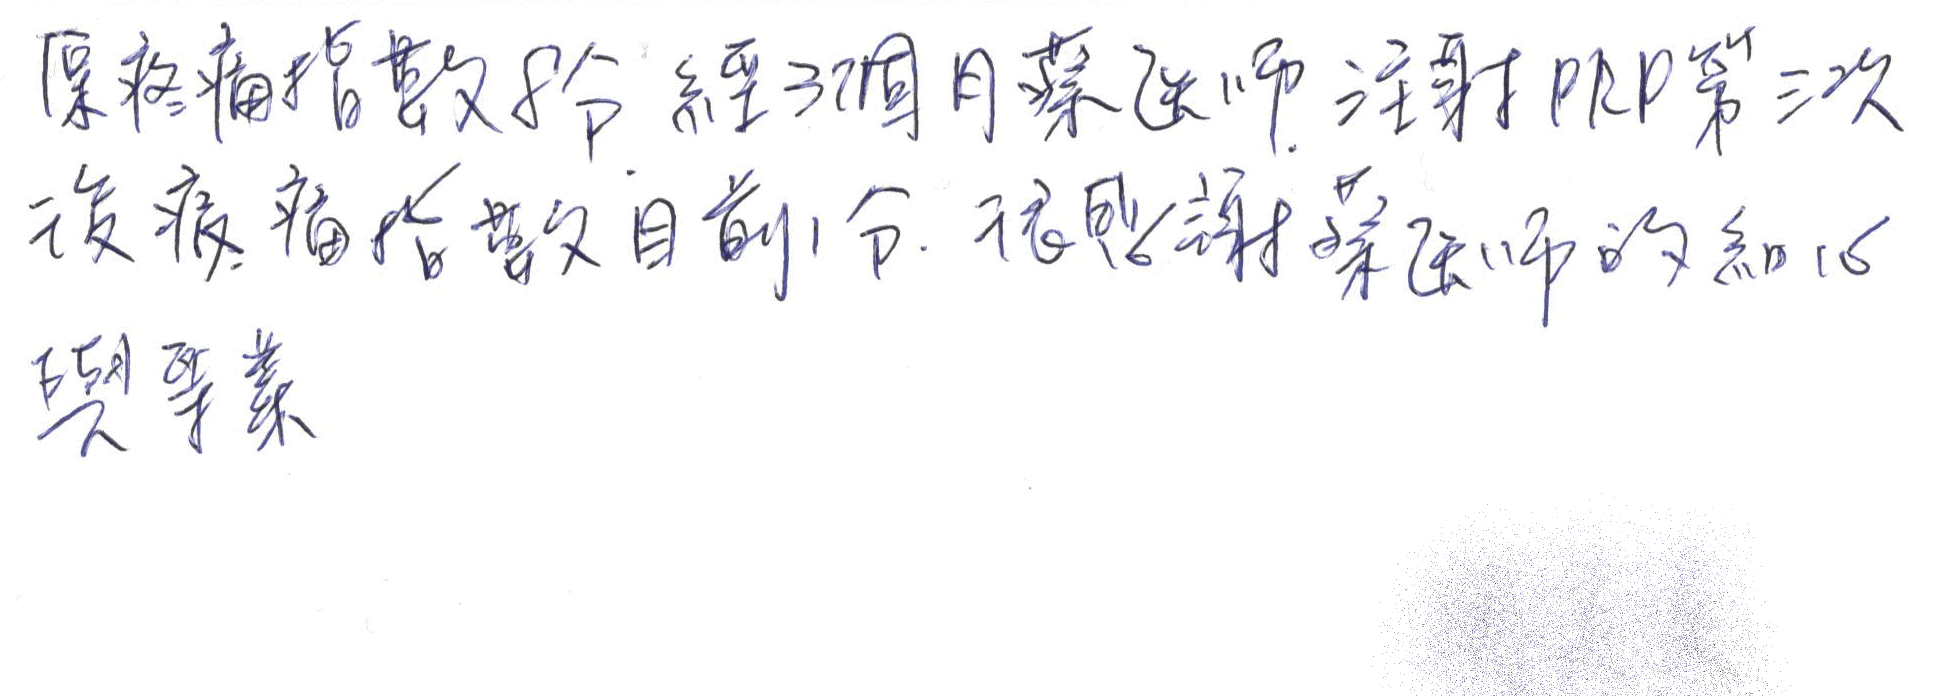 原疼痛指數8分 經3個月蔡医師 注射PRP第三次
後疼痛指數目前1分. 很感謝蔡医師的細心
與專業